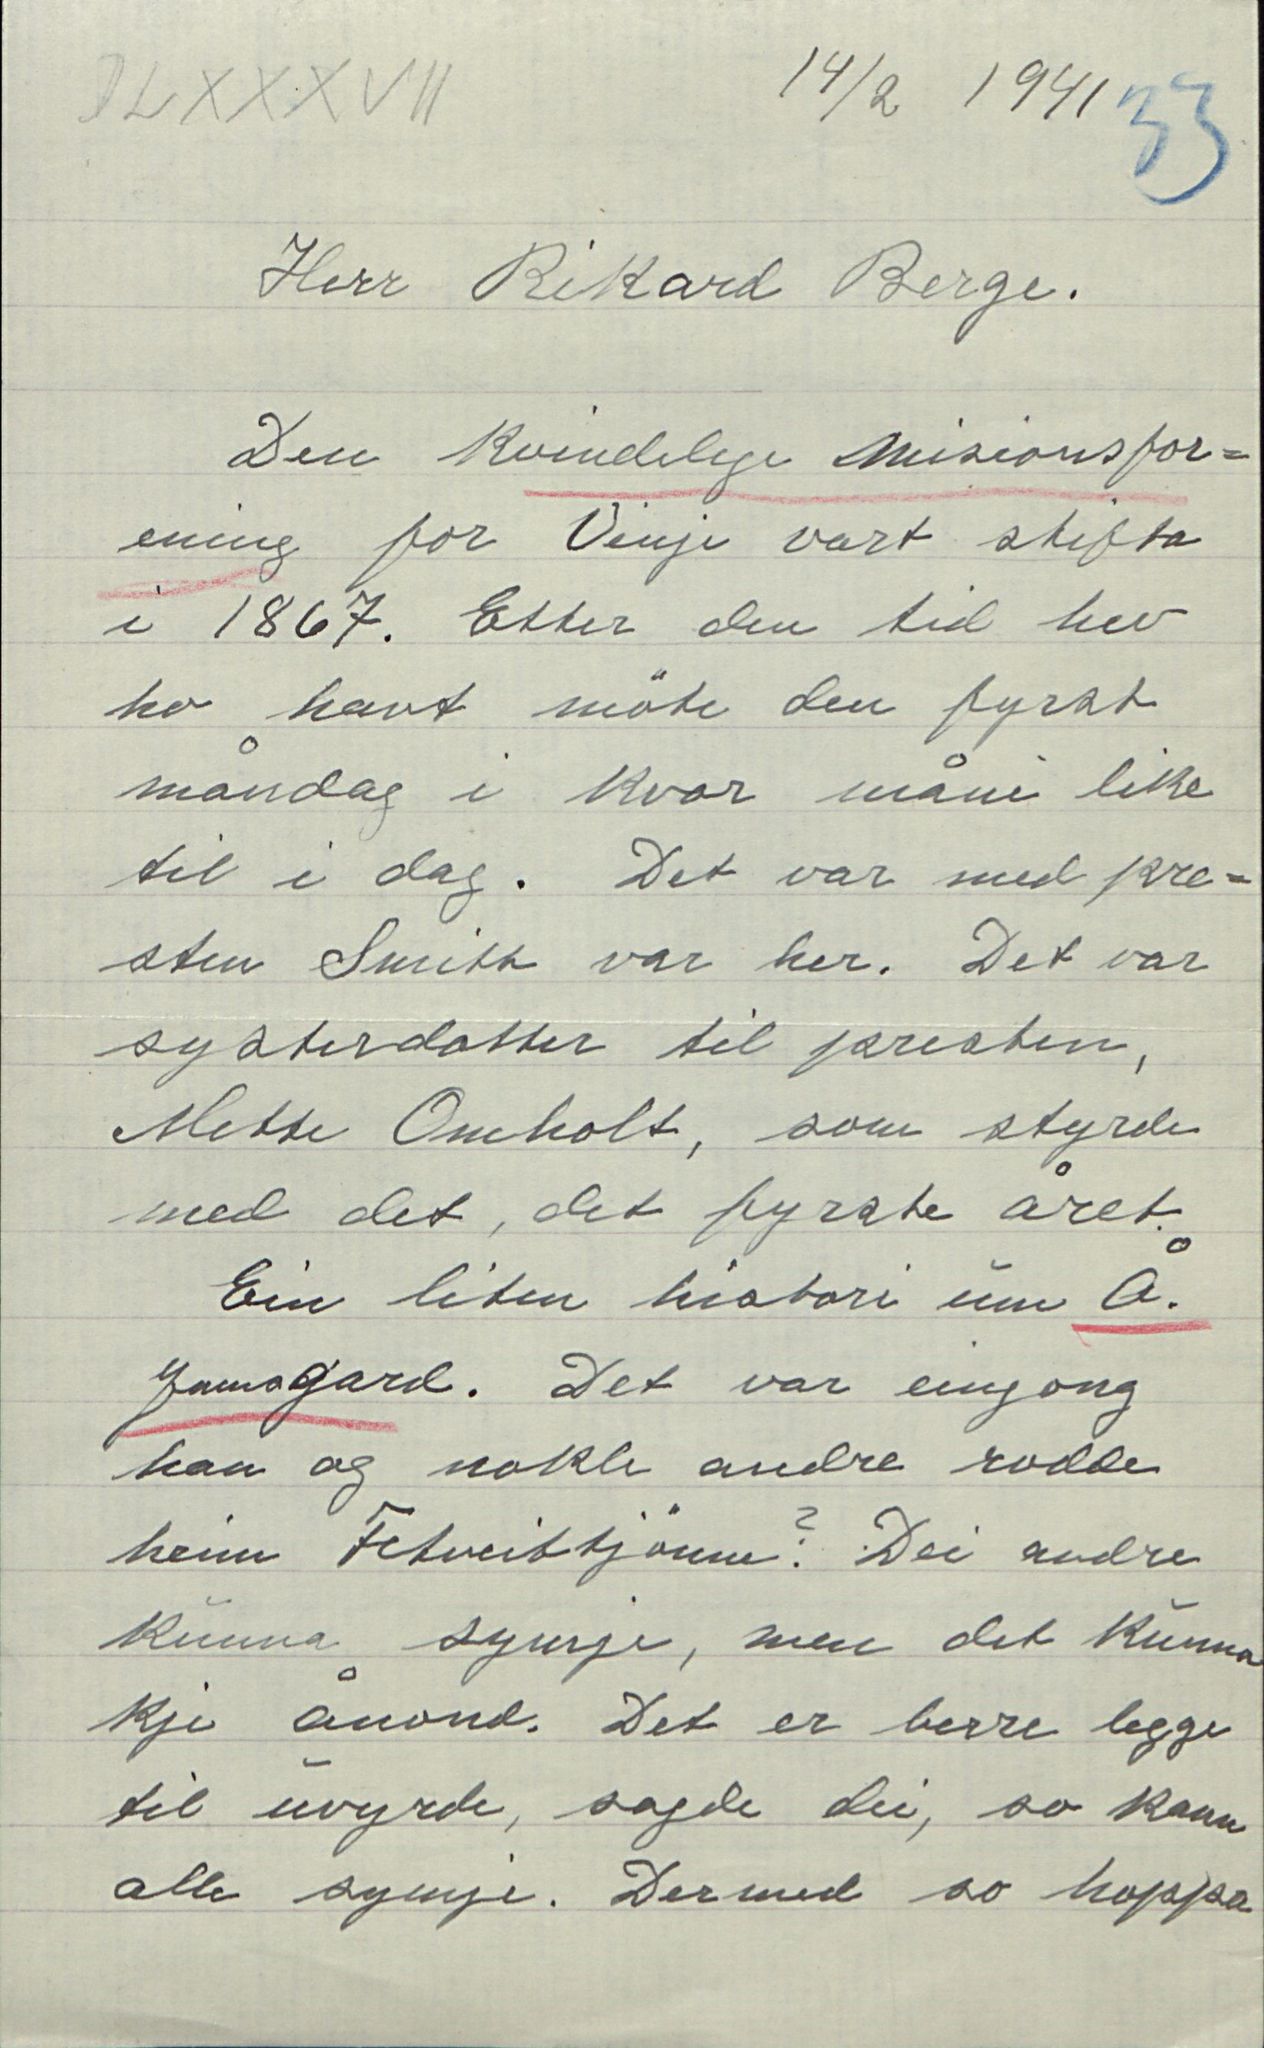 DLXXXVII 14/2 1941 33
Herr Rikard Berge.
Den kvindelege Misionsfor=
ening for Vinje vart stifta
i 1867. Etter den tid hev
ho havt möte den fyrst
måndag i kvar måni like
til i dag. Det var med pre=
sten Smitt var her. Det var
systerdotter til presten,
Mette Omholt, som styrde
med det, det fyrste året.
Ein liten histori ŭm Å.
Jamsgard. Det var eingong
han og nokle andre rodde
heim Fetveittjönne? Dei andre
kŭnna symje, men det kŭnna
kje Ånond. Det er berre legge
til ŭvyrde, sagde dei, so kann
alle symje. Dermed so hoppa